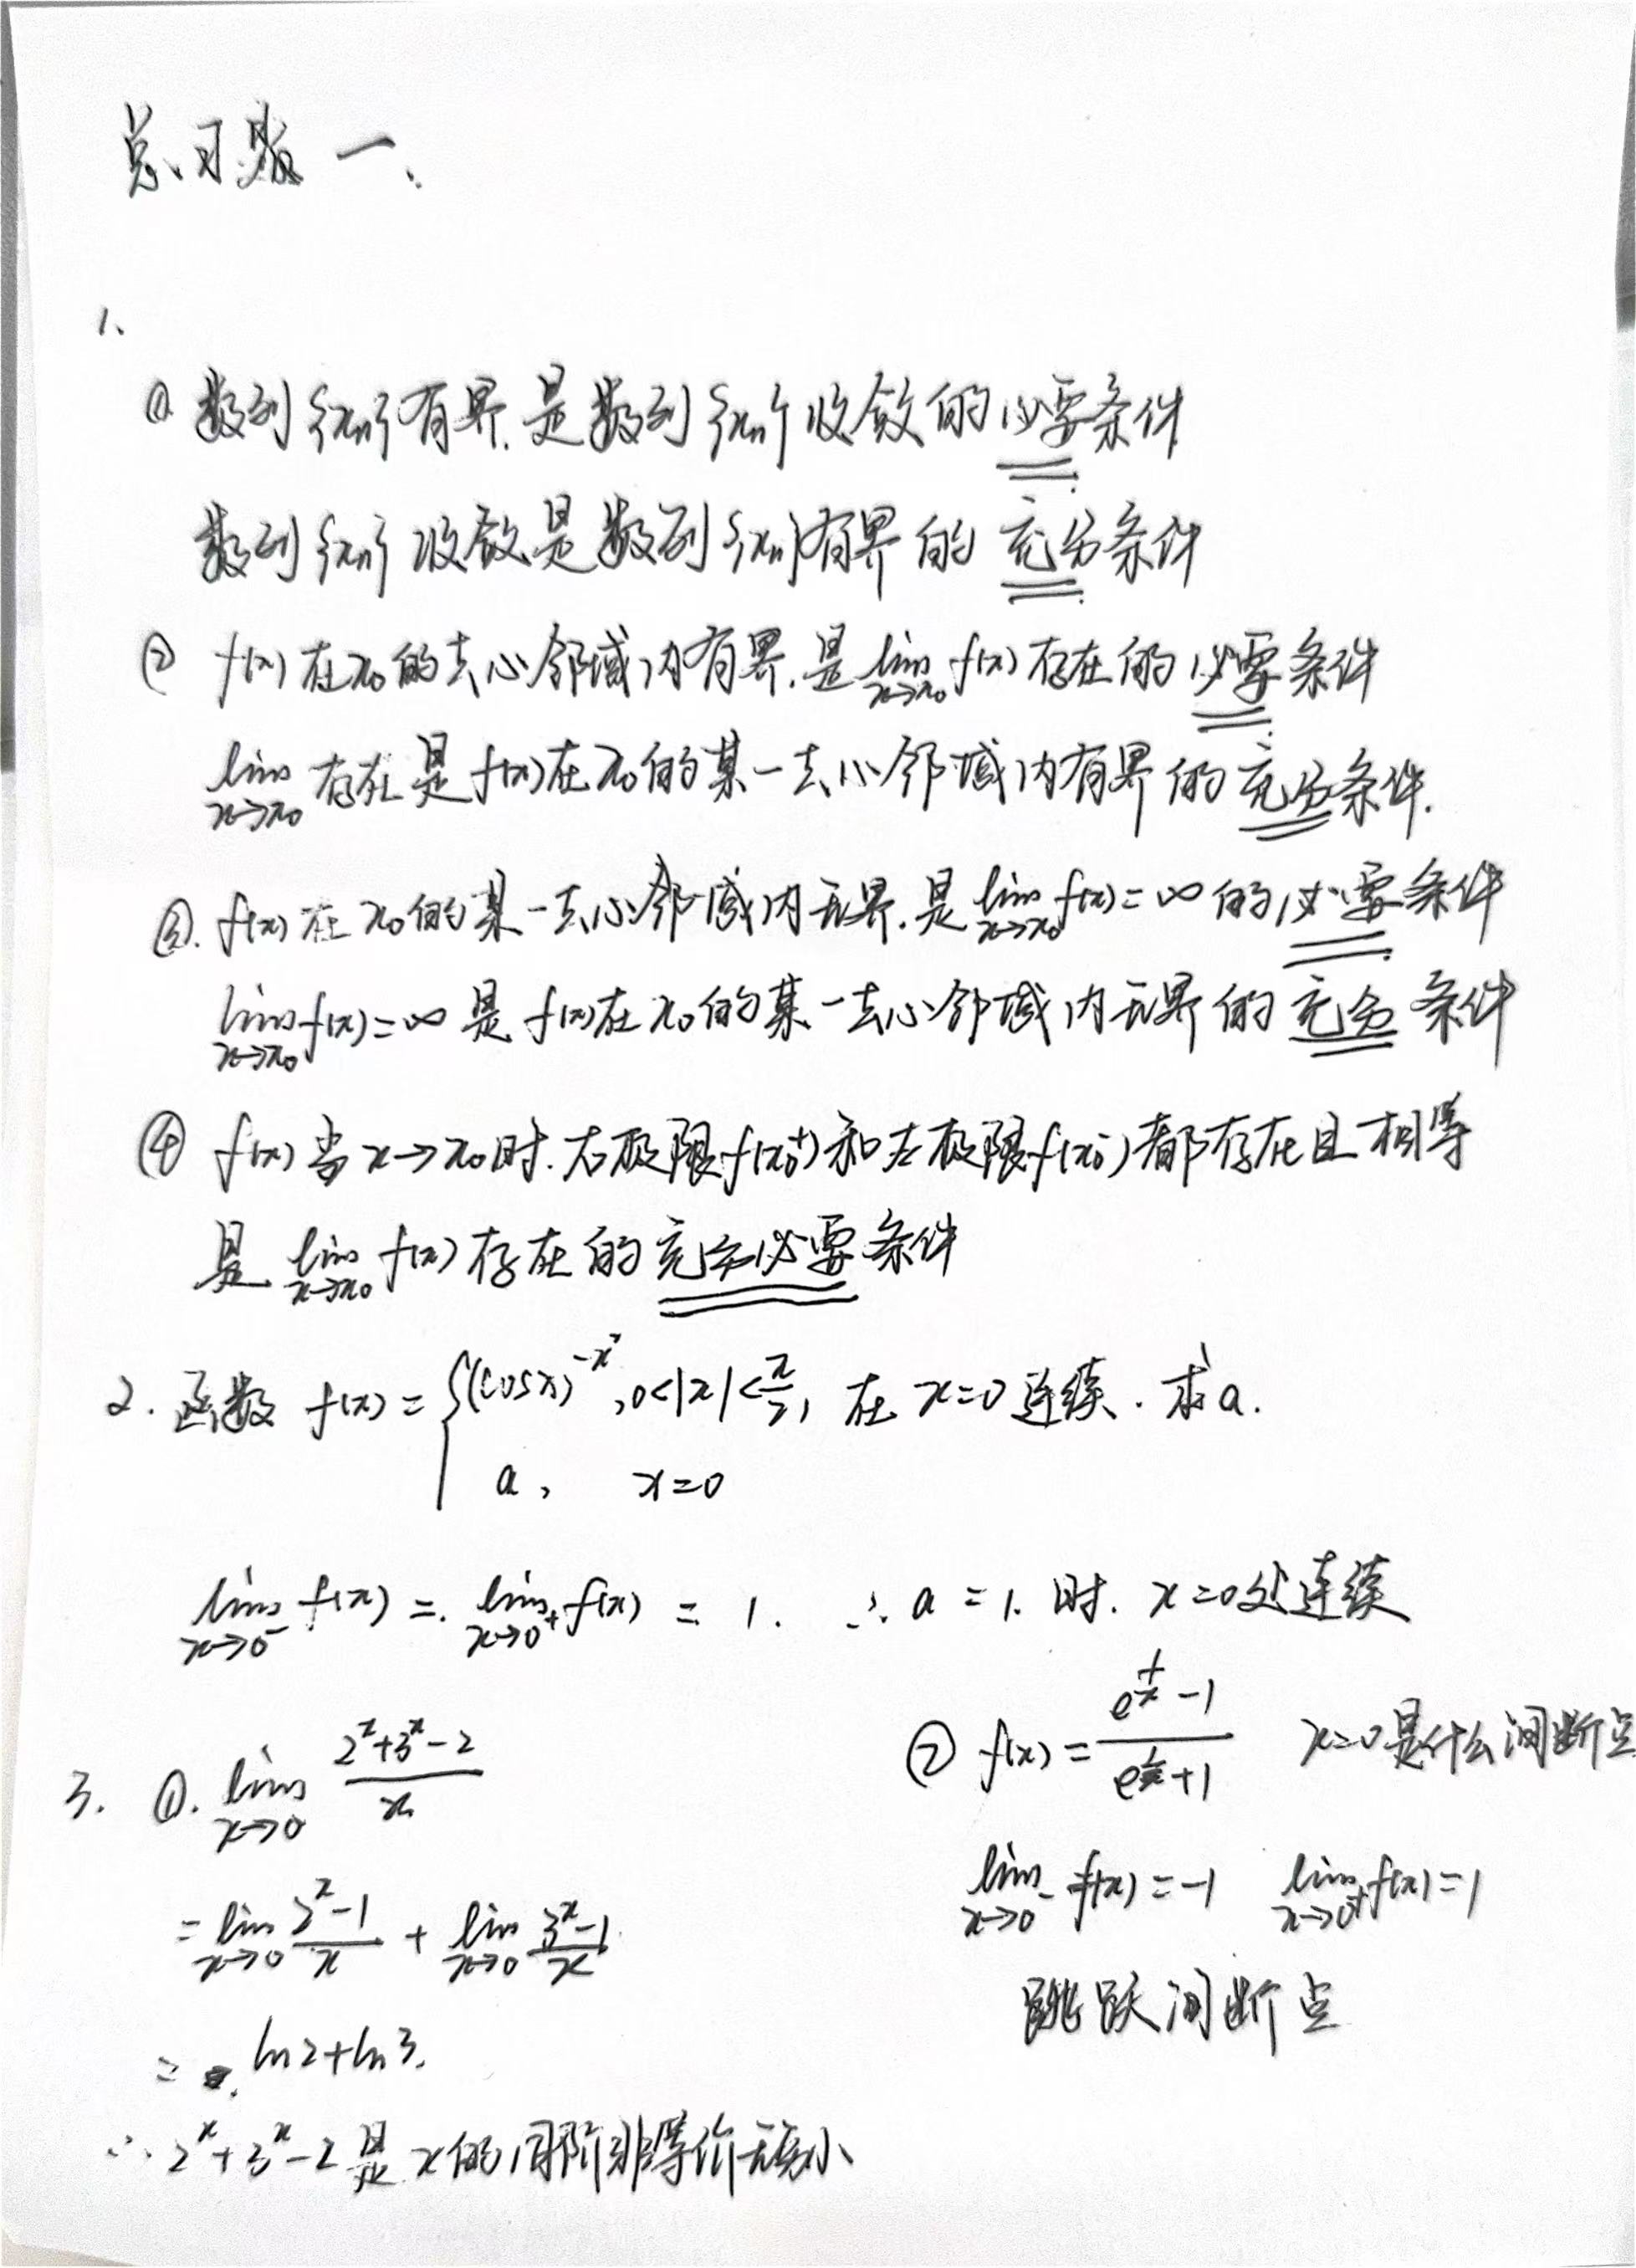 总习题一、
1、
① 数列{xn}有界.是数列{xn}收敛的必要条件
数列{xn}收敛是数列{xn}有界的充分条件
② f(x)在x₀的去心邻域内有界.是lim x→x₀ f(x)存在的必要条件
lim x→x₀ 存在是f(x)在x₀的某一去心邻域内有界的充分条件.
③. f(x)在x₀的某一去心邻域内无界.是lim x→x₀ f(x)=∞的必要条件
lim x→x₀ f(x)=∞是f(x)在x₀的某一去心邻域内无界的充分条件
④ f(x)当x→x₀时.右极限f(x₀⁺)和左极限f(x₀⁻)都存在且相等
是 lim x→x₀ f(x)存在的充分必要条件
2. 函数 f(x)={(cosx)^(-x²),0<|x|<π/2, 在x=0连续.求a.
a, x=0
lim x→0⁻ f(x)=lim x→0⁺ f(x)=1. ∴a=1.时.x=0处连续
3. ①. lim x→0 (2^x+3^x-2)/x
=lim x→0 (2^x-1)/x + lim x→0 (3^x-1)/x
= ln2+ln3.
∴2^x+3^x-2是x的同阶非等价无穷小
② f(x)=(e^(1/x)-1)/(e^(1/x)+1) x=0是什么间断点
lim x→0⁻ f(x)=-1 lim x→0⁺ f(x)=1
跳跃间断点